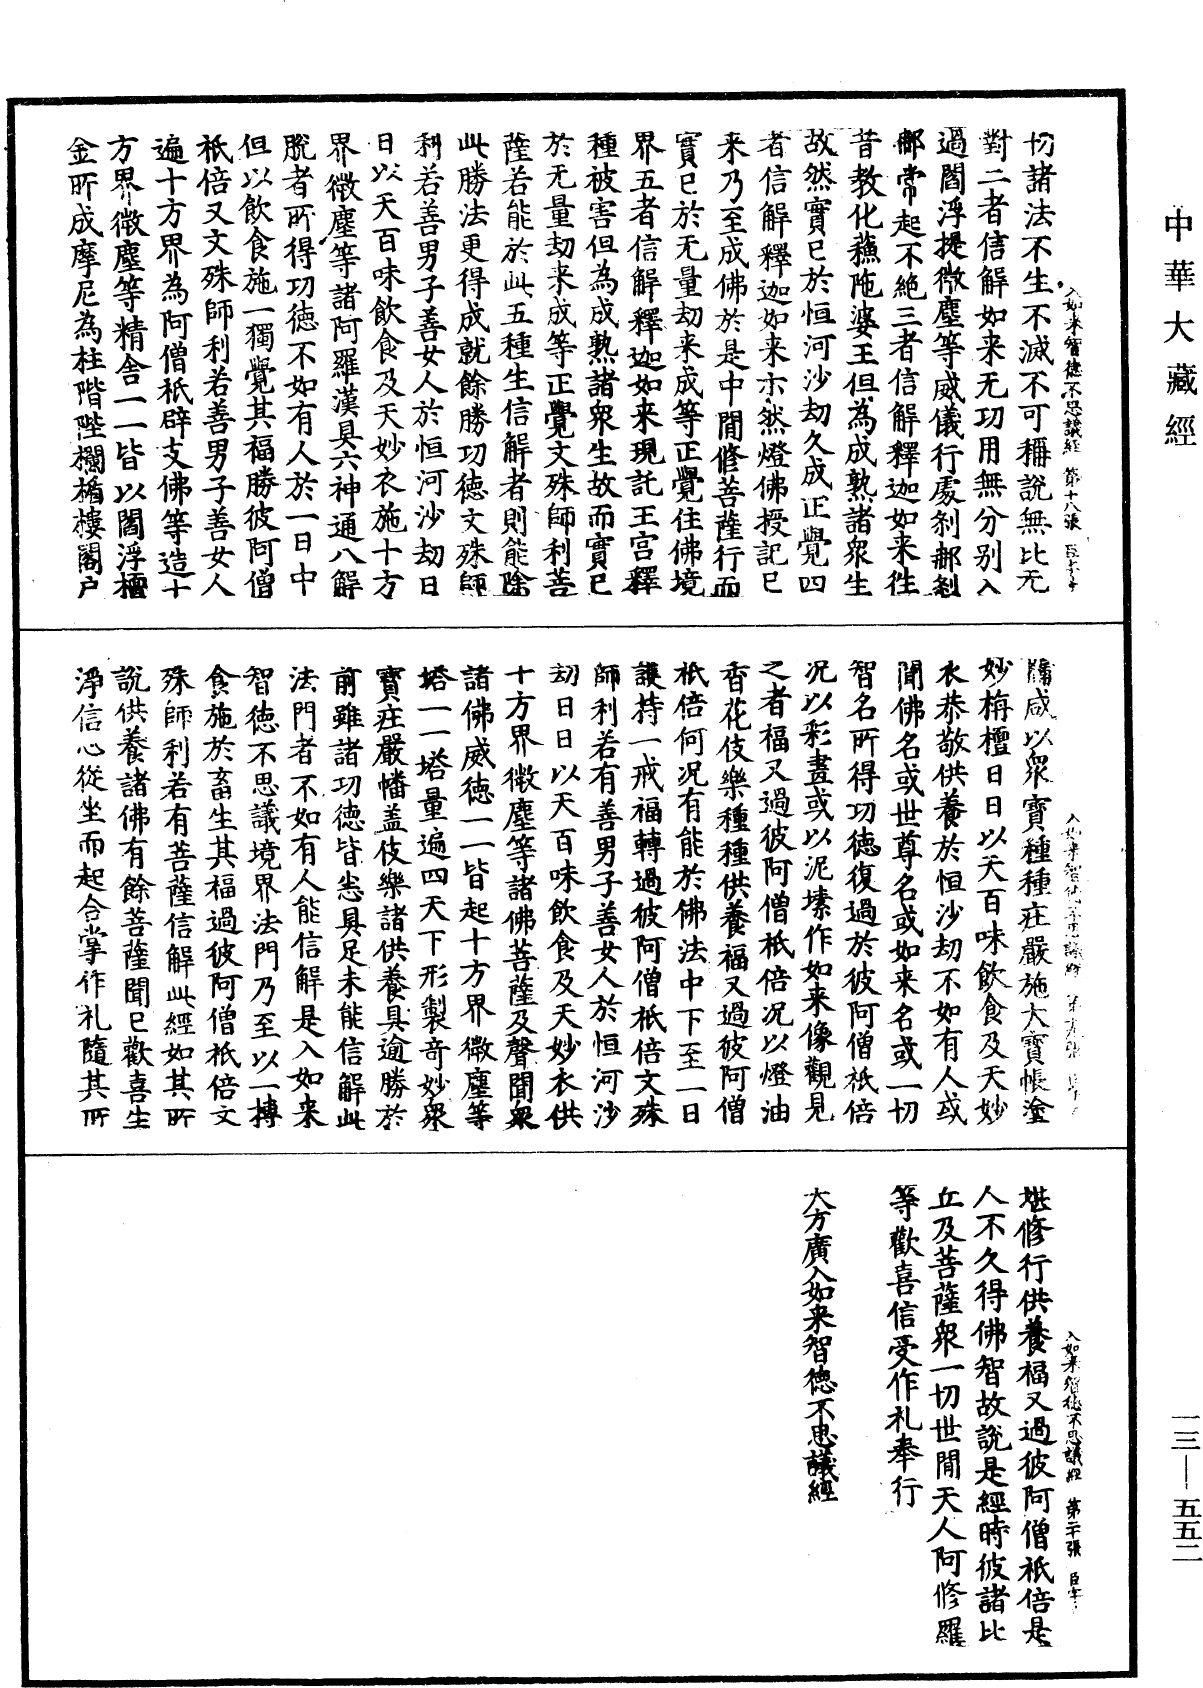 中華大藏經
入如来智德不思議經 第十八張
切諸法不生不滅不可稱說無比无
對二者信解如来无功用無分别入
過閻浮提微塵等威儀行處剎𨚗剎
𨚗常起不絶三者信解釋迦如来往
昔教化蘓陁婆王但為成熟諸衆生
故然實已於恒河沙劫久成正覺四
者信解釋迦如来亦然燈佛授記已
来乃至成佛於是中閒修菩薩行而
實已於无量劫来成等正覺住佛境
界五者信解釋迦如来現託王宫釋
種被害但為成熟諸衆生故而實已
於无量劫来成等正覺文殊師利菩
薩若能於此五種生信解者則能除
此勝法更得成就餘勝功德文殊師
利若善男子善女人於恒河沙劫日
日以天百味飲食及天妙衣施十方
界微塵等諸阿羅漢具六神通八解
脫者所得功德不如有人於一日中
但以飲食施一獨覺其福勝彼阿僧
祇倍又文殊師利若善男子善女人
遍十方界為阿僧祇辟支佛等造十
方界微塵等精舍一一皆以閻浮檀
金所成摩尼為柱階陛欄楯樓閣户
牖咸以衆寶種種莊嚴施大寶帳塗
妙栴檀日日以天百味飲食及天妙
衣恭敬供養於恒沙劫不如有人或
聞佛名或世尊名或如来名或一切
智名所得功德復過於彼阿僧祇倍
况以彩畫或以泥塐作如来像觀見
之者福又過彼阿僧祇倍况以燈油
香花伎樂種種供養福又過彼阿僧
祇倍何况有能於佛法中下至一日
護持一戒福轉過彼阿僧祇倍文殊
師利若有善男子善女人於恒河沙
劫日日以天百味飲食及天妙衣供
十方界微塵等諸佛菩薩及聲聞衆
諸佛威德一一皆起十方界微塵等
塔一一塔量遍四天下形製奇妙衆
寶莊嚴幡盖伎樂諸供養具逾勝於
前雖諸功德皆悉具足未能信解此
法門者不如有人能信解是入如来
智德不思議境界法門乃至以一摶
食施於畜生其福過彼阿僧祇倍文
殊師利若有菩薩信解此經如其所
說供養諸佛有餘菩薩聞已歡喜生
淨信心從坐而起合掌作礼隨其所
入如来智德不思議經 第二十張
堪修行供養福又過彼阿僧祇倍是
人不久得佛智故說是經時彼諸比
丘及菩薩衆一切世間天人阿修羅
等歡喜信受作礼奉行
大方廣入如来智德不思議經
一三—五五二